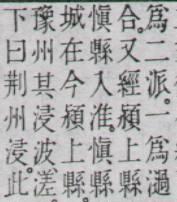 為二派。一為濄
合。又經潁上縣
慎縣入淮。慎縣
城在今潁上縣。
豫州其浸波溠。
下曰荆州浸。此